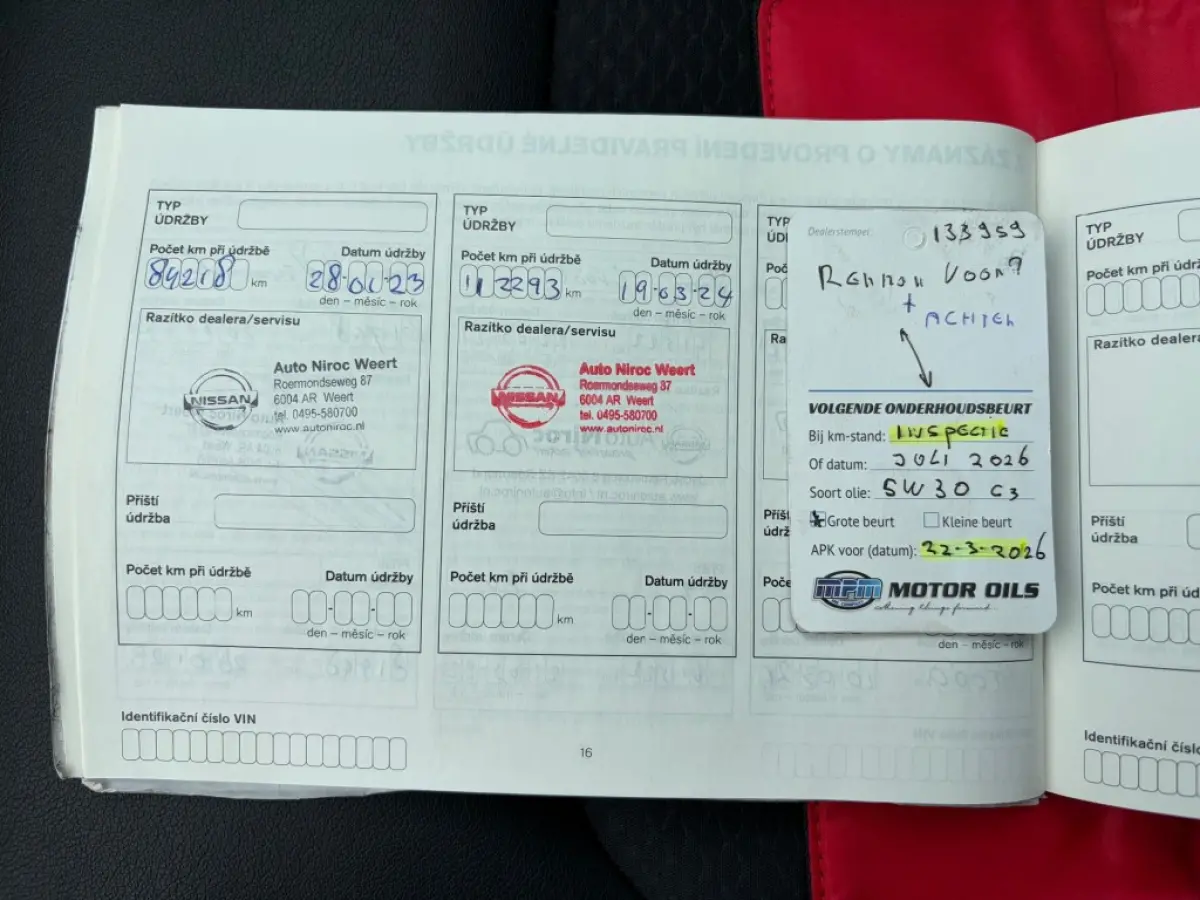 TYP
ÚDRŽBY
Počet km při údržbě
Datum údržby
84218 km
28-01-23
den – měsíc – rok
Razítko dealera/servisu
NISSAN
Auto Niroc Weert
Roermondseweg 87
6004 AR Weert
tel. 0495-580700
www.autoniroc.nl
Příští
údržba
Počet km při údržbě
Datum údržby
km
den – měsíc – rok
Identifikační číslo VIN
TYP
ÚDRŽBY
Počet km při údržbě
Datum údržby
112293 km
19-03-24
den – měsíc – rok
Razítko dealera/servisu
NISSAN
Auto Niroc Weert
Roermondseweg 87
6004 AR Weert
tel. 0495-580700
www.autoniroc.nl
Příští
údržba
Počet km při údržbě
Datum údržby
km
den – měsíc – rok
16
TYP
ÚD
Poč
Ra
Příš
údr
Poče
den – měsíc – rok
Dealerstempel
133959
Remmen Voor
+
ACHTER
VOLGENDE ONDERHOUDSBEURT
Bij km-stand: INSPECTIE
Of datum: JULI 2026
Soort olie: 5W30 C3
Grote beurt
Kleine beurt
APK voor (datum): 22-3-2026
MPM MOTOR OILS
TYP
ÚDRŽBY
Počet km při údržb
Razítko dealera
Příští
údržba
Počet km při úd
Identifikační číslo